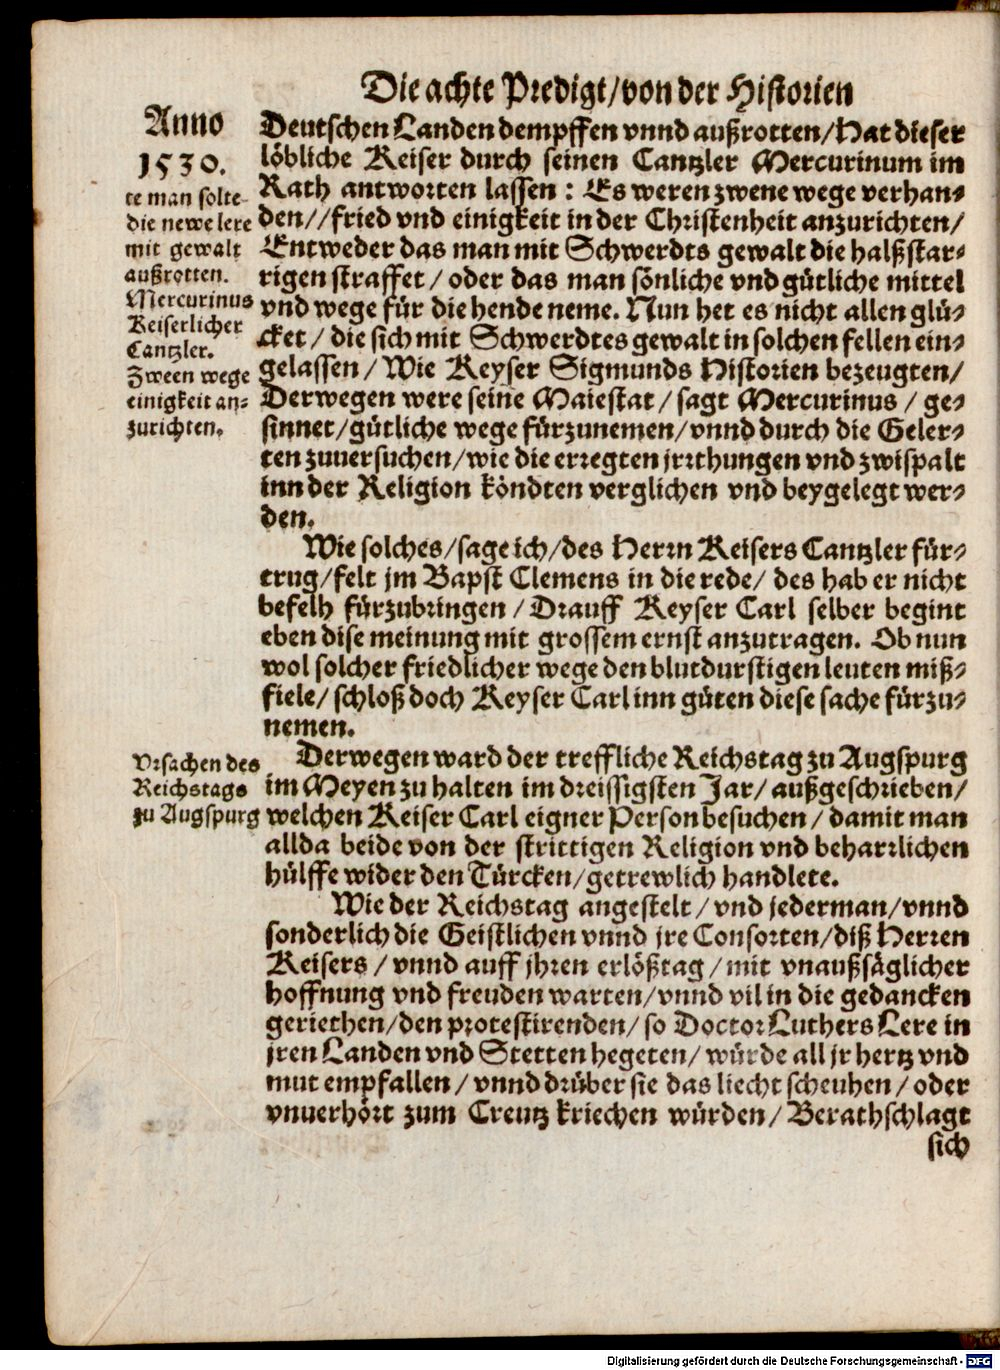 Die achte Predigt/von der Historien
Anno
1530.
te man solte
die newe lere
mit gewalt
außrotten.
Mercurinus
Keiserlicher
Cantzler.
Zween wege
einigkeit an-
zurichten.
Deutschen Landen dempffen vnnd außrotten/Hat dieser
löbliche Keiser durch seinen Cantzler Mercurinum im
Rath antworten lassen : Es weren zwene wege verhan-
den//fried vnd einigkeit in der Christenheit anzurichten/
Entweder das man mit Schwerdts gewalt die halßstar-
rigen straffet/ oder das man sönliche vnd gütliche mittel
vnd wege für die hende neme. Nun het es nicht allen glü-
cket/ die sich mit Schwerdtes gewalt in solchen fellen ein-
gelassen/ Wie Keyser Sigmunds Historien bezeugten/
Derwegen were seine Maiestat/ sagt Mercurinus/ ge-
sinnet/gütliche wege fürzunemen/vnnd durch die Geler-
ten zuuersuchen/wie die erregten jrrthungen vnd zwispalt
inn der Religion köndten verglichen vnd beygelegt wer-
den.
Wie solches/sage ich/des Herrn Keisers Cantzler für-
trug/felt jm Bapst Clemens in die rede/ des hab er nicht
befelh fürzubringen/ Drauff Keyser Carl selber begint
eben dise meinung mit grossem ernst anzutragen. Ob nun
wol solcher friedlicher wege den blutdurstigen leuten miß-
fiele/ schloß doch Keyser Carl inn güten diese sache fürzu-
nemen.
Vrsachen des
Reichstags
zu Augspurg
Derwegen ward der treffliche Reichstag zu Augspurg
im Meyen zu halten im dreissigsten Jar/ außgeschrieben/
welchen Keiser Carl eigner Person besuchen/ damit man
allda beide von der strittigen Religion vnd beharrlichen
hülffe wider den Türcken/getrewlich handlete.
Wie der Reichstag angestelt/ vnd jederman/vnnd
sonderlich die Geistlichen vnnd jre Consorten/diß Herren
Keisers/ vnnd auff jhren erlößtag/ mit vnaußsäglicher
hoffnung vnd freuden warten/vnnd vil in die gedancken
geriethen/den protestirenden/ so Doctor Luthers Lere in
jren Landen vnd Stetten hegeten/ würde all jr hertz vnd
mut empfallen/ vnnd drüber sie das liecht scheuhen/ oder
vnuerhört zum Creutz kriechen würden/ Berathschlagt
sich
Digitalisierung gefördert durch die Deutsche Forschungsgemeinschaft - DFG